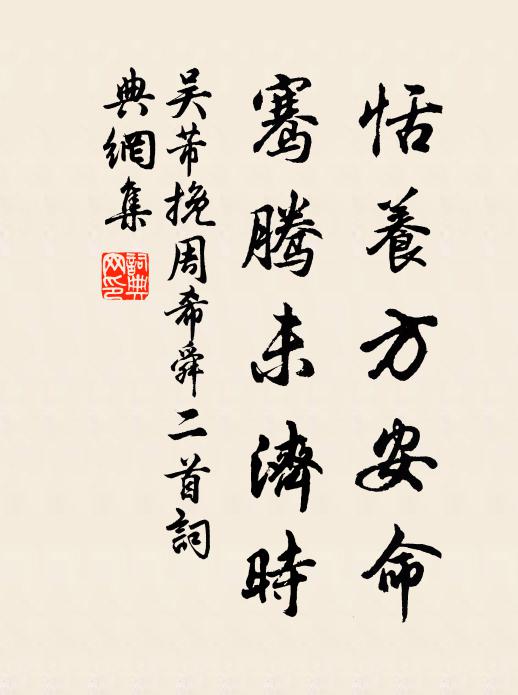 恬養方安命
騫騰未濟時
吳芾挽周希舜二首詞
典網集
詞典網印